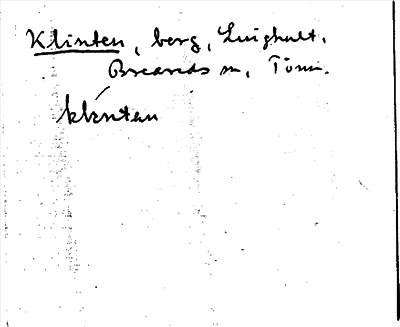 Klinten, berg, Ljunghult,
Breareds sn, Tönn.
klintan